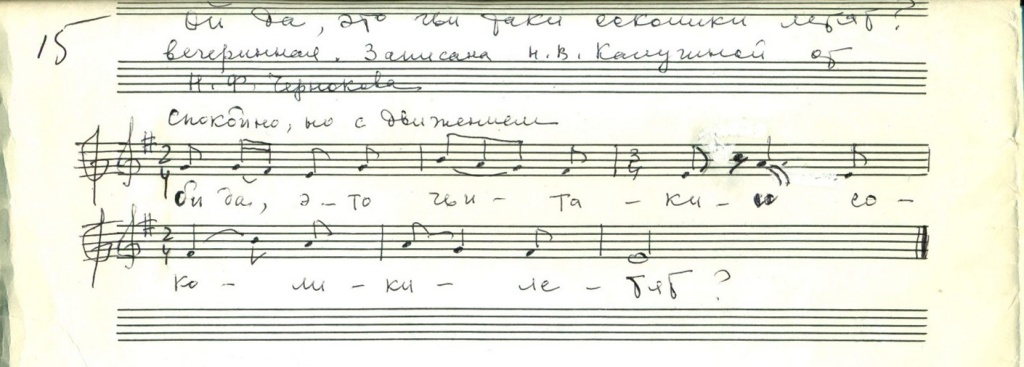 15
Ой да, это чьи таки соколики летят?
вечеринная. Записана Н. В. Калугиной от
Н. Ф. Чернокова
Спокойно, но с движением
2 4 3 4
Ой да, э-то чьи-та-ки- со-
2 4
ко-ли-ки-ле-тят?